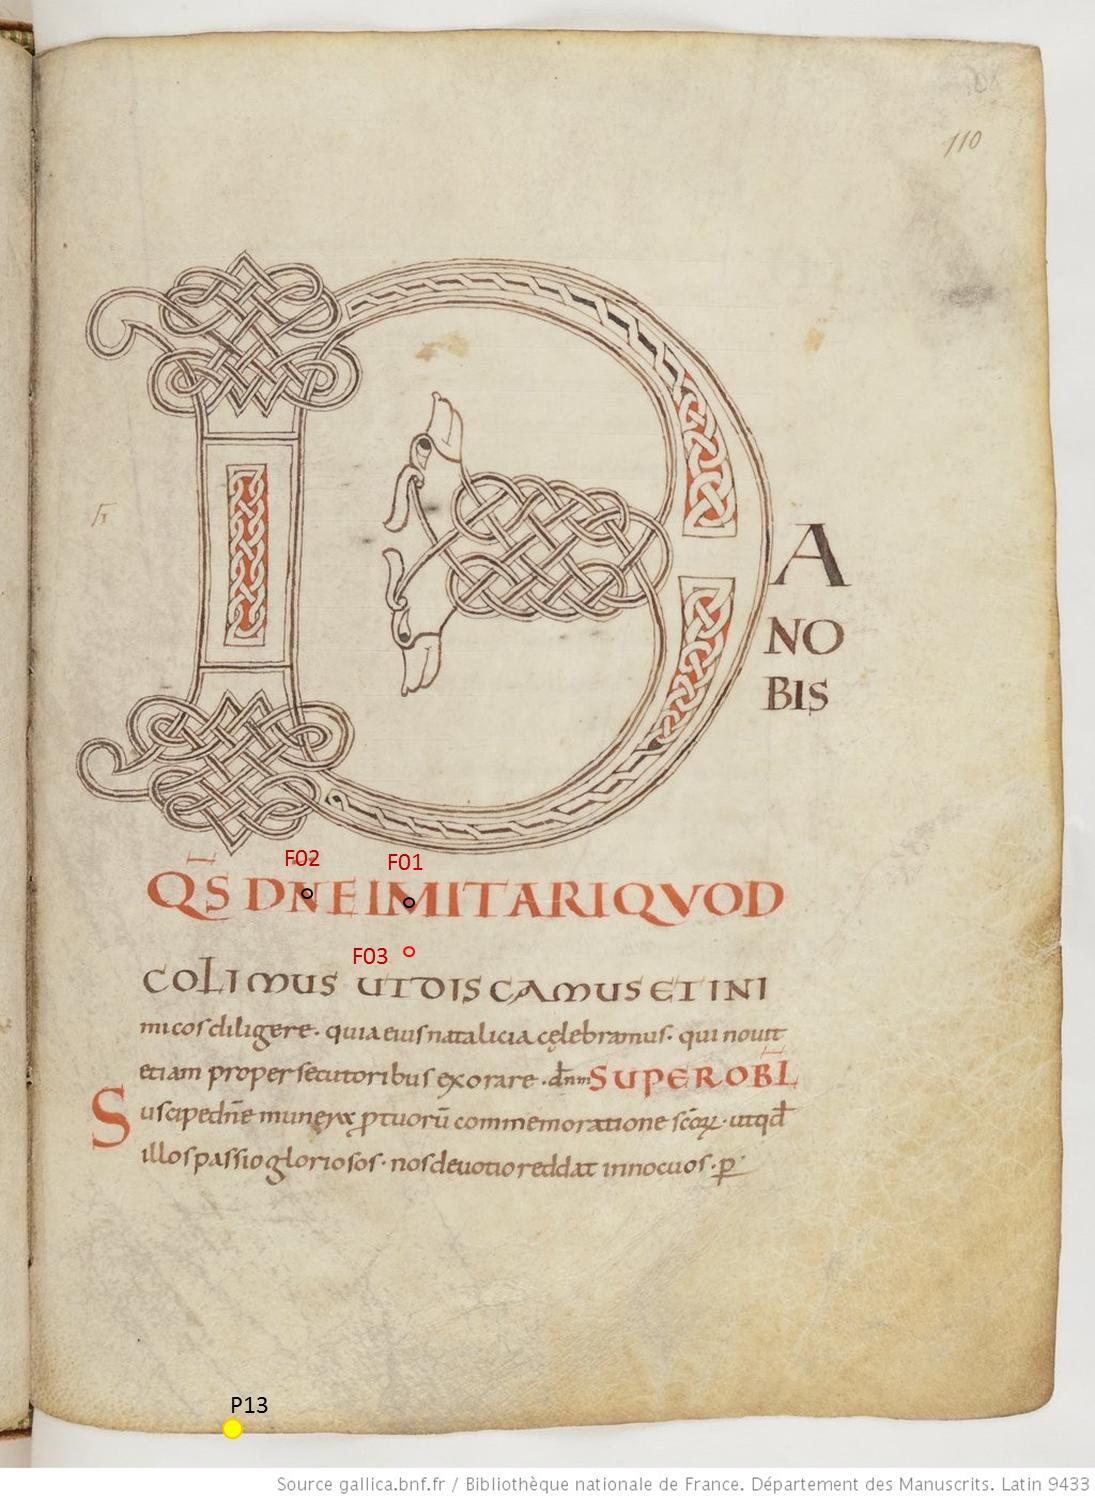 110
D A
NO
BIS
F02 F01
QS DNE IMITARI QVOD
F03
COLIMUS UT DISCAMUS ET INI
micos diligere. quia eius natalicia cęlebramus. qui nouit
etiam pro persecutoribus exorare. dnm SUPER OBL
Suscipe dne munera p tuorū commemoratione scōrꝝ. ut qd
illos passio gloriosos. nos deuotio reddat innocuos. p
P13
Source gallica.bnf.fr / Bibliothèque nationale de France. Département des Manuscrits. Latin 9433